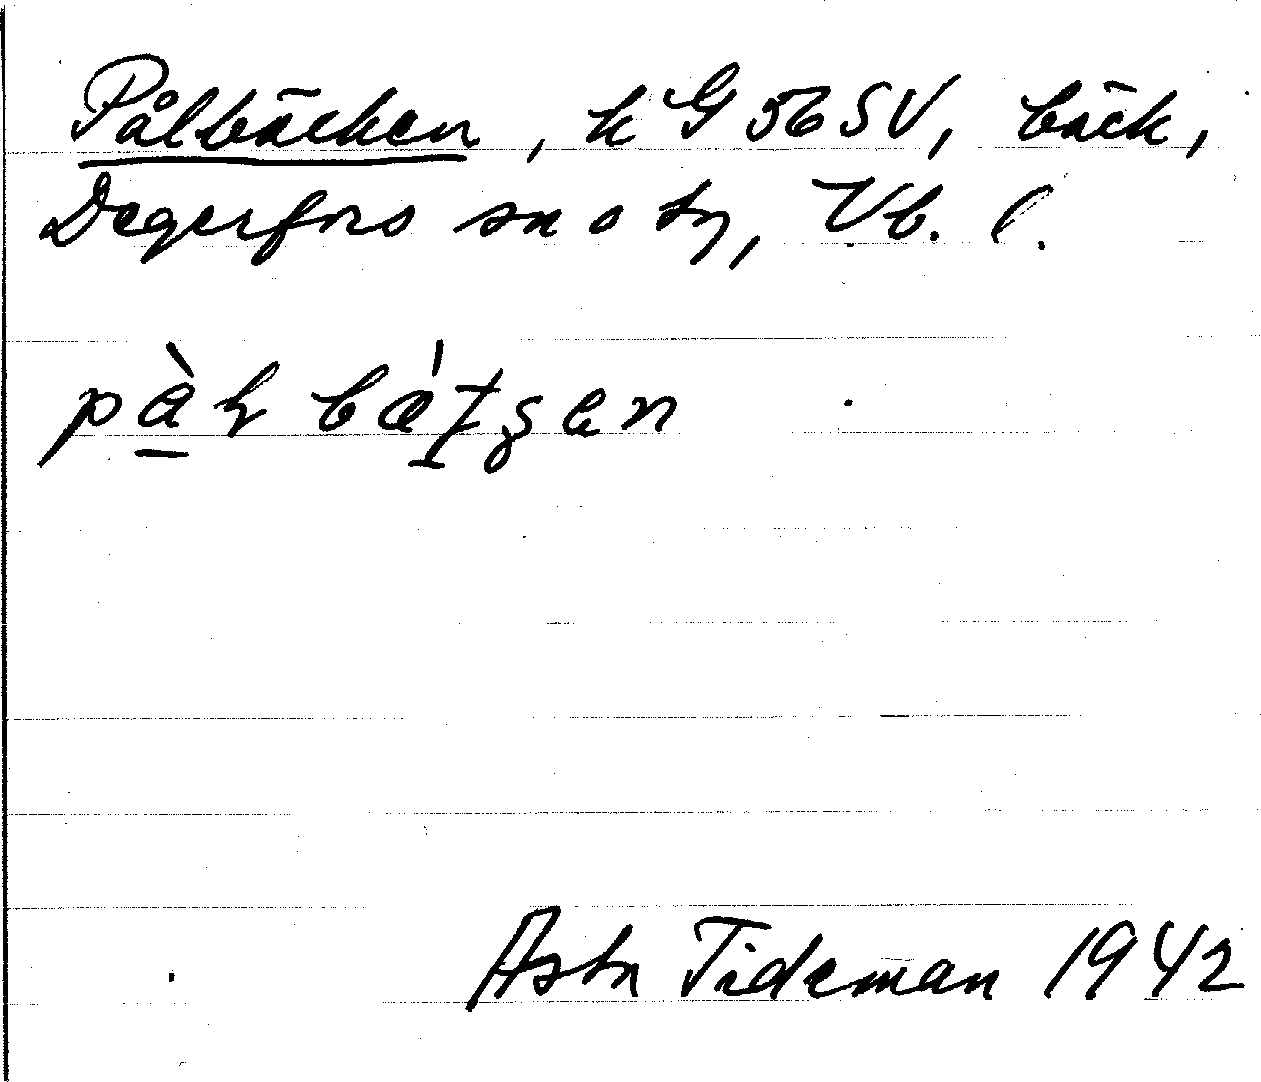 Pålbäcken, k G 56 SV, bäck,
Degerfors sn o tg, Vb. l.
pàl̨ bǽtşen
Asta Tideman 1942